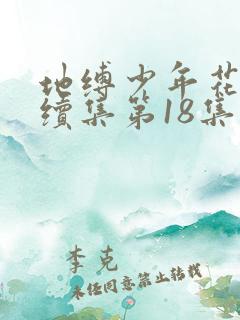 地缚少年花
續集第18集
李克
未经同意禁止转载